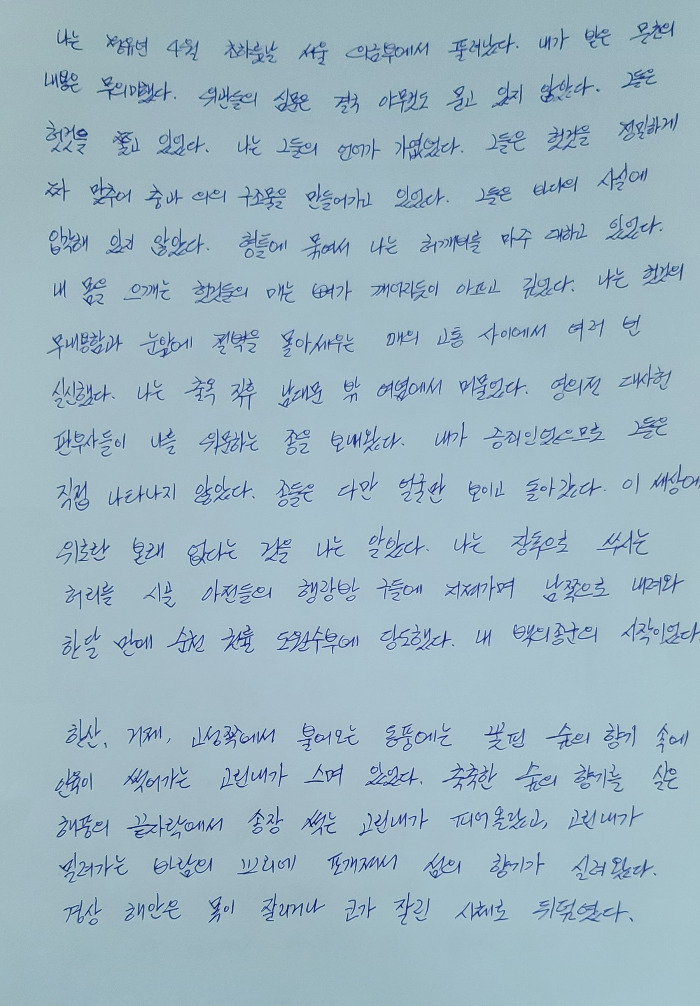 나는 정유년 4월 초하룻날 서울 의금부에서 풀려났다. 내가 받은 문초의
내용은 무의미했다. 위관들의 심문은 결국 아무것도 묻고 있지 않았다. 그들은
헛것을 쫓고 있었다. 나는 그들의 언어가 가엾었다. 그들은 헛것을 정밀하게
짜 맞추어 충과 의의 구조물을 만들어가고 있었다. 그들은 바다의 사실에
입각해 있지 않았다. 형틀에 묶여서 나는 허깨비를 마주 대하고 있었다.
내 몸을 으깨는 헛것들의 매는 뼈가 깨어지듯이 아프고 깊었다. 나는 헛것의
무내용함과 눈앞에 절벽을 몰아세우는 매의 고통 사이에서 여러 번
실신했다. 나는 출옥 직후 남대문 밖 여염에서 머물렀다. 영의정 대사헌
판부사들이 나를 위문하는 종을 보내왔다. 내가 중죄인이었으므로 그들은
직접 나타나지 않았다. 종들은 다만 얼굴만 보이고 돌아갔다. 이 세상에
위로란 본래 없다는 것을 나는 알았다. 나는 장독으로 쑤시는
허리를 시골 아전들의 행랑방 구들에 지져가며 남쪽으로 내려와
한달 만에 순천 권률 도원수부에 당도했다. 내 백의종군의 시작이었다.
한산, 거제, 고성쪽에서 불어오는 동풍에는 꽃핀 숲의 향기 속에
인육이 썩어가는 고린내가 스며 있었다. 축축한 숲의 향기를 실은
해풍의 끝자락에서 송장 썩는 고린내가 피어올랐고, 고린내가
밀려가는 바람의 꼬리에 포개져서 섬의 향기가 실려왔다.
경상 해안은 목이 잘리거나 코가 잘린 시체로 뒤덮였다.